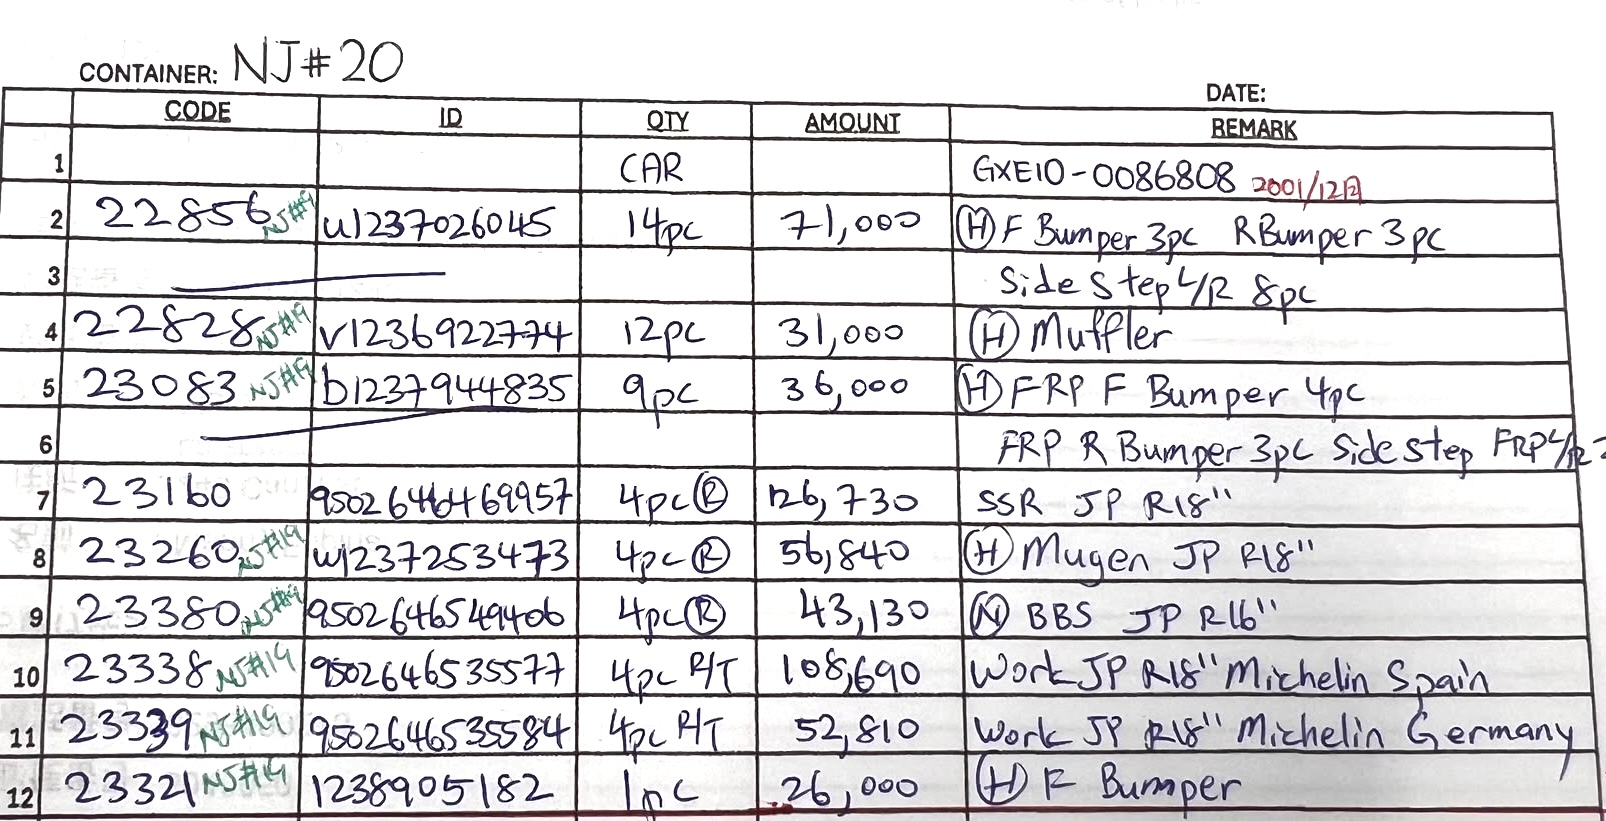 CONTAINER: NJ#20
DATE:
CODE ID QTY AMOUNT REMARK
1 CAR GXE10-0086808 2001/12月
2 22856 NJ#9 u1237026045 14pc 71,000 Ⓗ F Bumper 3pc R Bumper 3pc
3 Side Step L/R 8pc
4 22828 NJ#9 v1236922774 12pc 31,000 Ⓗ Muffler
5 23083 NJ#9 b1237944835 9pc 36,000 Ⓗ FRP F Bumper 4pc
6 FRP R Bumper 3pc Side Step FRP L/R
7 23160 9502646469957 4pc Ⓡ 126,730 SSR JP R18"
8 23260 NJ#19 w1237253473 4pc Ⓡ 56,840 Ⓗ Mugen JP R18"
9 23380 9502646549406 4pc Ⓡ 43,130 Ⓝ BBS JP R16"
10 23338 NJ#19 9502646535577 4pc R/T 108,690 Work JP R18" Michelin Spain
11 23339 NJ#19 9502646535584 4pc R/T 52,810 Work JP R18" Michelin Germany
12 23321 NJ#19 1238905182 1pc 26,000 Ⓗ F Bumper